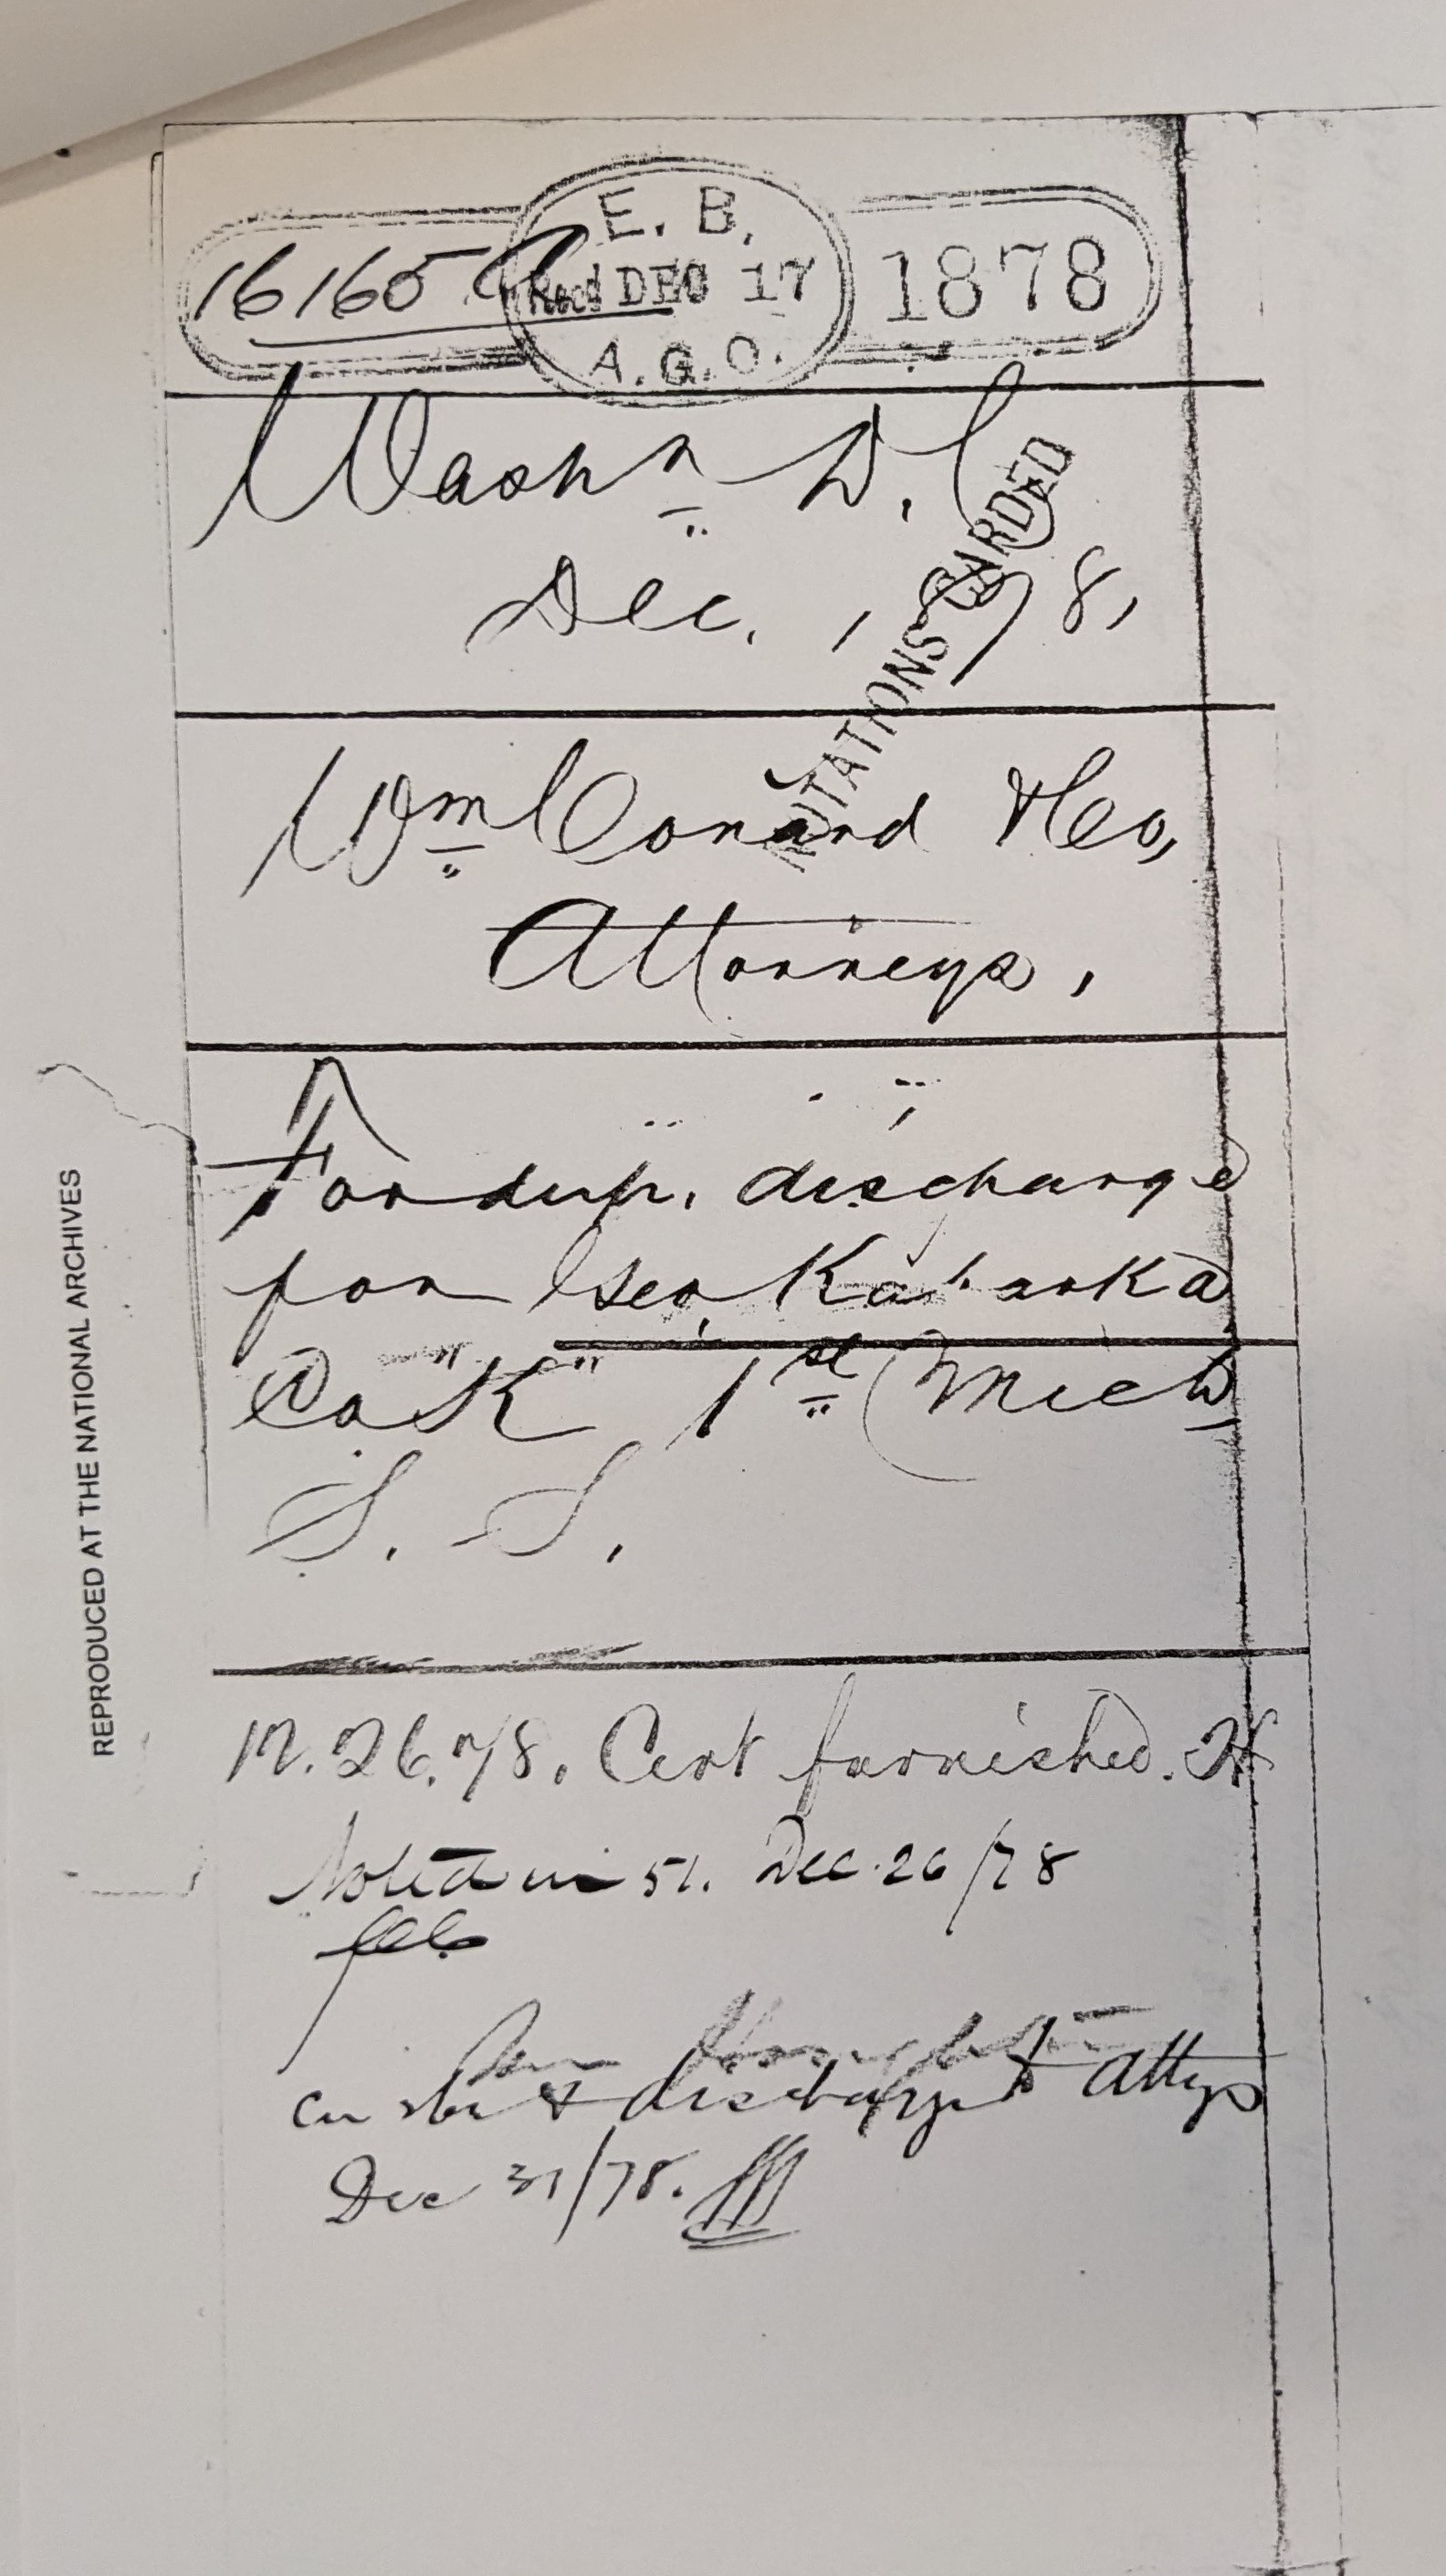 E. B.
16165 Recd DEC 17 1878
A.G.O.
Washn D.C.
Dec. , 1878,
NOTATIONS CARDED
Wm Conard & Co,
Attorneys,
For dup. discharge
for Geo. Kabaoka,
Co "K" 1st Mich
S. S.
12.26.78. Cert furnished.
Noted in 51. Dec. 26/78
& discharge to Attys
Dec 31/78.
REPRODUCED AT THE NATIONAL ARCHIVES